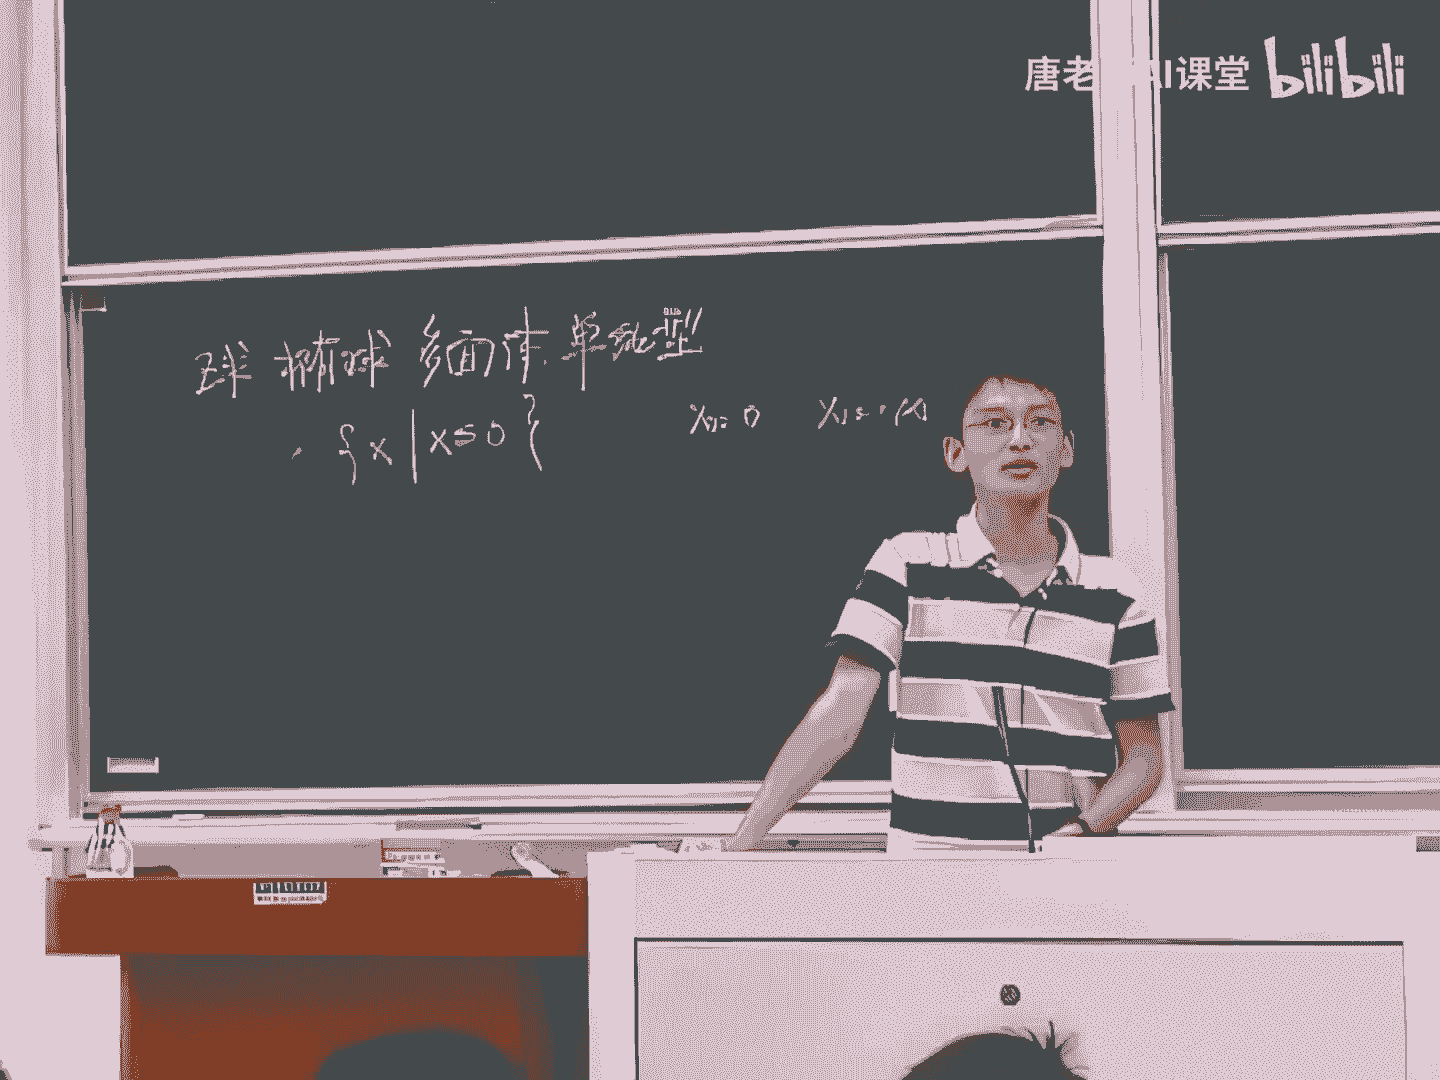 唐老 AI课堂 bilibili
球 椭球 多面体 单纯型
{x | x≤0}